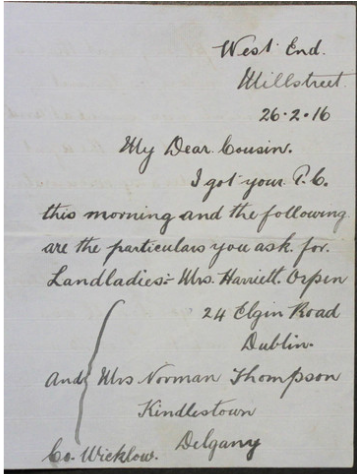 West End.
Millstreet.
26·2·16
My Dear Cousin.
I got your P.C.
this morning and the following
are the particulars you ask for.
Landladies:- Mrs. Harriett. Orpen
24 Elgin Road
Dublin.
And Mrs Norman Thompson
Kindlestown
Delgany
Co. Wicklow.